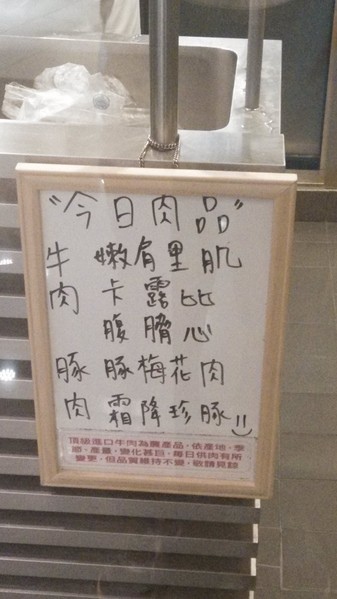 "今日肉品"
牛 嫩肩里肌
肉 卡露比
腹臍心
豚 豚梅花肉
肉 霜降珍豚
頂級進口牛肉為農產品，依產地、季
節、產量，變化甚巨，每日供肉有所
變更，但品質維持不變，敬請見諒